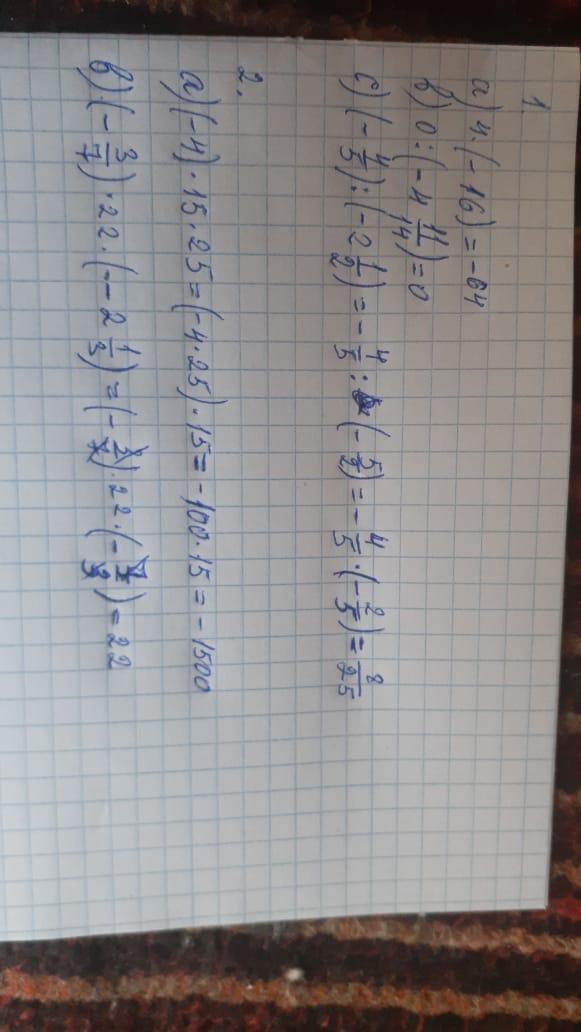 1.
a) 4·(-16)=-64
b) 0:(-4 11/14)=0
c) (-4/5):(-2 1/2)=-4/5:(-5/2)=-4/5·(-2/5)=8/25
2.
a) (-4)·15·25=(-4·25)·15=-100·15=-1500
b) (-3/7)·22·(-2 1/3)=(-3/7)·22·(-7/3)=22